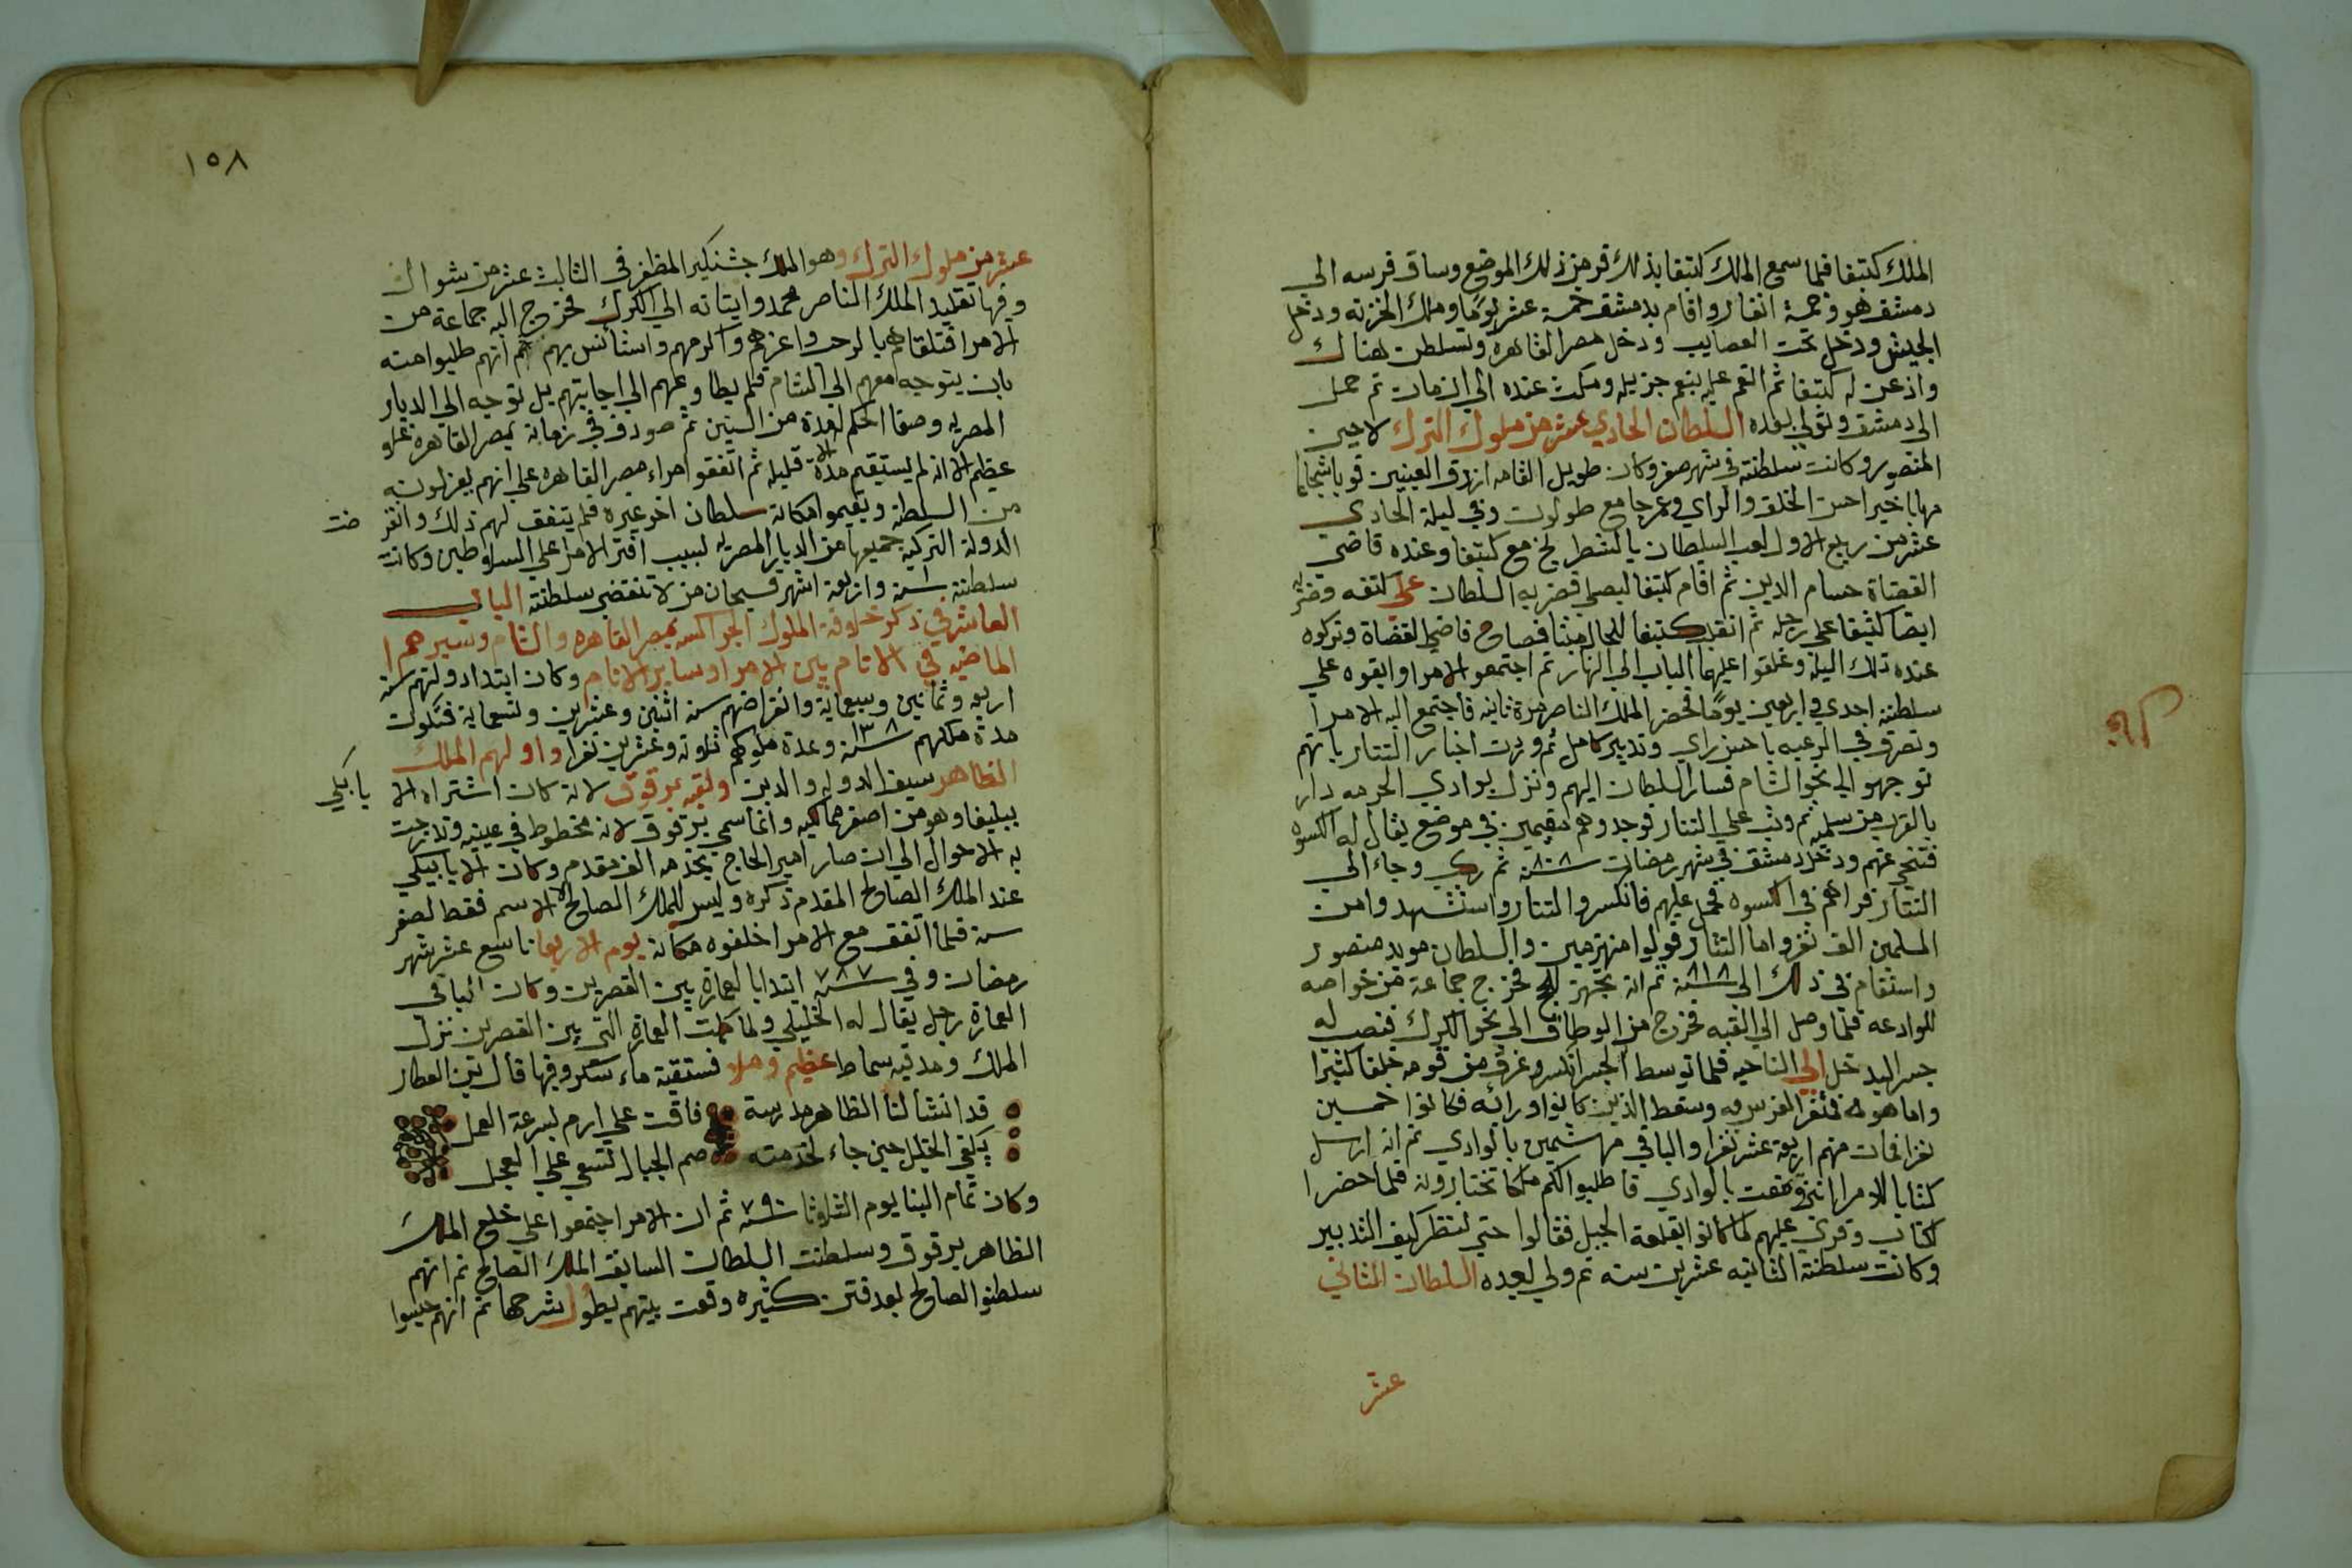 الملك كتبغا فلما سمع الملك كتبغا بذلك فر من ذلك الموضع وساق فرسه الى
دمشق هو وخمسة انفار واقام بدمشق خمسة عشر يوما وملك الخزنه ودخل
الجيش ودخل تحت العصايب ودخل مصر القاهره وتسلطن هناك
واذعن له كتبغا ثم انعم عليه بنعم جزيله ومكث عنده الي ان مات ثم حمل
الى دمشق وتولى بعده السلطان الحادي عشر من ملوك الترك لاجين
المنصور وكانت سلطنته في شهر صفر وكان طويل القامه ازرق العينين قويا شجاعا
مهابا خيرا حسن الخلق والراي وعمر جامع طولون وفي ليلة الحادي
عشر من ربيع الاول لعب السلطان بالشطرنج مع كتبغا وعنده قاضي
القضاة حسام الدين ثم اقام كتبغا ليصلي فضربه السلطان على كتفه وضربه
ايضا كتبغا على رجله ثم انقلب كتبغا للحال ميتا فصاح قاضي القضاة وتركوه
عنده تلك الليلة وغلقوا عليهما الباب الي النهار ثم اجتمعو الامرا وابقوه علي
سلطنته احدي واربعين يوما فحضر الملك الناصر مرة ثانيه فاجتمع اليه الامرا
وتصرف في الرعيه باحسن راي وتدبير كامل ثم وردت اخبار التتار بانهم
توجهو الي نحو الشام فسار السلطان اليهم ونزل بوادي الخرمه دار
بالقرب من سلميه ثم وثب علي التتار فوجدوهم مقيمين في موضع يقال له الكسوه
فتنحي عنهم ودخل دمشق في شهر رمضان سنة ٨٠٨ ثم ركب وجاء الي
التتار فراهم في الكسوه فحمل عليهم فانكسرو التتار واستشهد وامن
المسلمين الف نفر واما التتار فولوا منهزمين والسلطان مويد منصور
واستقام في ذلك الى سنة ٨١٨ ثم انه تجهز للحج فخرج جماعة من خواصه
للوادعه فلما وصل الي القبه فخرج من الوطاق الي نحو الكرك فنصب له
جسر ليدخل الي الناحيه فلما توسط الجسر انكسر وغرق من قومه خلقا كثيرا
واما هو فنفر الفرس به وسقط الذين كانوا ورائه فكانوا خمسين
نفرا فمات منهم اربعة عشر نفرا والباقي مهشمين بالوادي ثم انه ارسل
كتابا للامرا انني وقعت بالوادي فاطلبوا لكم ملكا تختارونه فلما حضر
الكتاب وقري عليهم لما كانوا بقلعة الجبل فقالوا حتي ننظر كيف التدبير
وكانت سلطنة الثانيه عشرين سنه ثم ولي بعده السلطان الثاني
عشر
١٥٨
عشر من ملوك الترك وهو الملك جشنكير المظفر في الثالث عشر من شوال
وفيها تقليد الملك الناصر محمد وايتانه الي الكرك فخرج اليه جماعة من
الامرا فتلقاهم بالرحب واعزهم واكرمهم واستأنس بهم ثم انهم طلبوا منه
بان يتوجه معهم الي الشام فلم يطاوعهم الي اجابتهم بل توجه الي الديار
المصريه وصفا الحكم لعدة من السنين ثم صودف في زمانه بمصر القاهره غلو
عظيم الا انه لم يستقيم الا مدة قليله ثم اتفقوا امراء مصر القاهره علي انهم يعزلونه
من السلطنة ويقيموا مكانه سلطان اخر غيره فلم يتفق لهم ذلك وانقرضت
الدولة التركيه جميعها من الديار المصريه لسبب افتر الامرا علي السلاطين وكانت
سلطنته سنة واربعة اشهر فسبحان من لا تنقضي سلطنته الباب
العاشر في ذكر خلافة الملوك الجراكسه بمصر القاهره والشام وسيرهم
الماضيه في الانام بين الامرا وساير الانام وكان ابتدا دولتهم سنة
اربعه وثمانين وسبعماية وانقراضهم سنة اثنين وعشرين وتسعماية فتكون
مدة ملكهم ١٣٨ سنة وعدة ملوكهم ثلاثة وعشرين نفرا واولهم الملك
الظاهر سيف الدوله والدين ولقبه برقوق لانه كان اشتراه الاتابكي
ببليغا وهو من اصغر مماليكه وانما سمي برقوق لانه مخطوط في عينيه وتدرجت
به الاحوال الي ان صار امير الحاج بخدمه الف مقدم وكان الاتابيكي
عند الملك الصالح المقدم ذكره وليس للملك الصالح الا الاسم فقط لصغر
سنه فلما اتفق مع الامرا خلفوه مكانه يوم الاربعا تاسع عشر شهر
رمضان وفي سنة ٧٨٧ ابتدا بالعمارة بين القصرين وكان الباقي
العمارة رجل يقال له الخليلي ولما كملت العمارة التي بين القصرين نزل
الملك ومد فيه سماط عظيم وملا فستقية ماء سكر وفيها قال ابن العطار
قد انشا لنا الظاهر مدرسة فاقت علي ارم بسرعة العمل
يكفي الخليل حين جاء لخدمته صم الجبال تسعي علي العجل
وكان تمام البنا يوم الثلاثا سنة ٧٩٠ ثم ان الامرا جتمعوا علي خلع الملك
الظاهر برقوق وسلطنت السلطان السابق الملك الصالح ثم انهم
سلطنوا الصالح بعد فتن كثيره وقعت بينهم يطول شرحها ثم انهم حبسوا